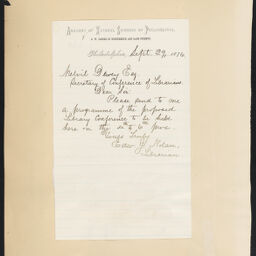 Academy of Natural Sciences of Philadelphia,
S. W. CORNER OF NINETEENTH AND RACE STREETS.
Philadelphia, Sept. 29, 1876.
Melvil Dewey Esq.
Secretary of Conference of Librarians
Dear Sir
Please send to me
a programme of the proposed
Library Conference to be held
here on the 4th to 6th prox.
Yours Truly
Edw. J. Nolan,
Librarian